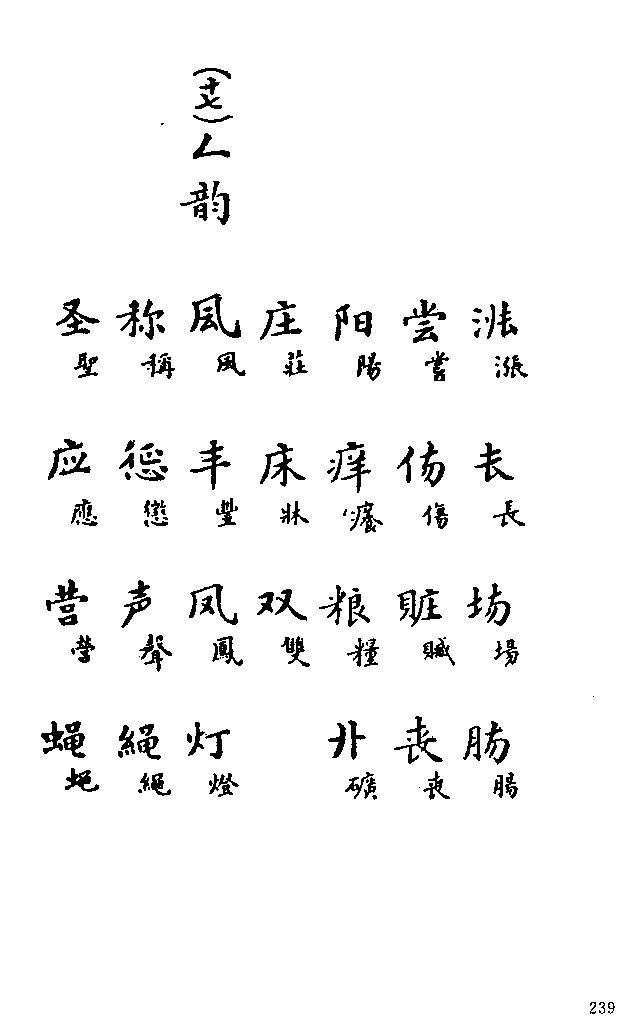 涨 漲 长 長 场 場 肠 腸
尝 嘗 伤 傷 赃 贓 丧 喪
阳 陽 痒 癢 粮 糧 卝 礦
庄 莊 床 牀 双 雙
(十七)ㄥ韵
风 風 丰 豐 凤 鳳 灯 燈
称 稱 惩 懲 声 聲 绳 繩
圣 聖 应 應 营 營 蝇 蠅
239